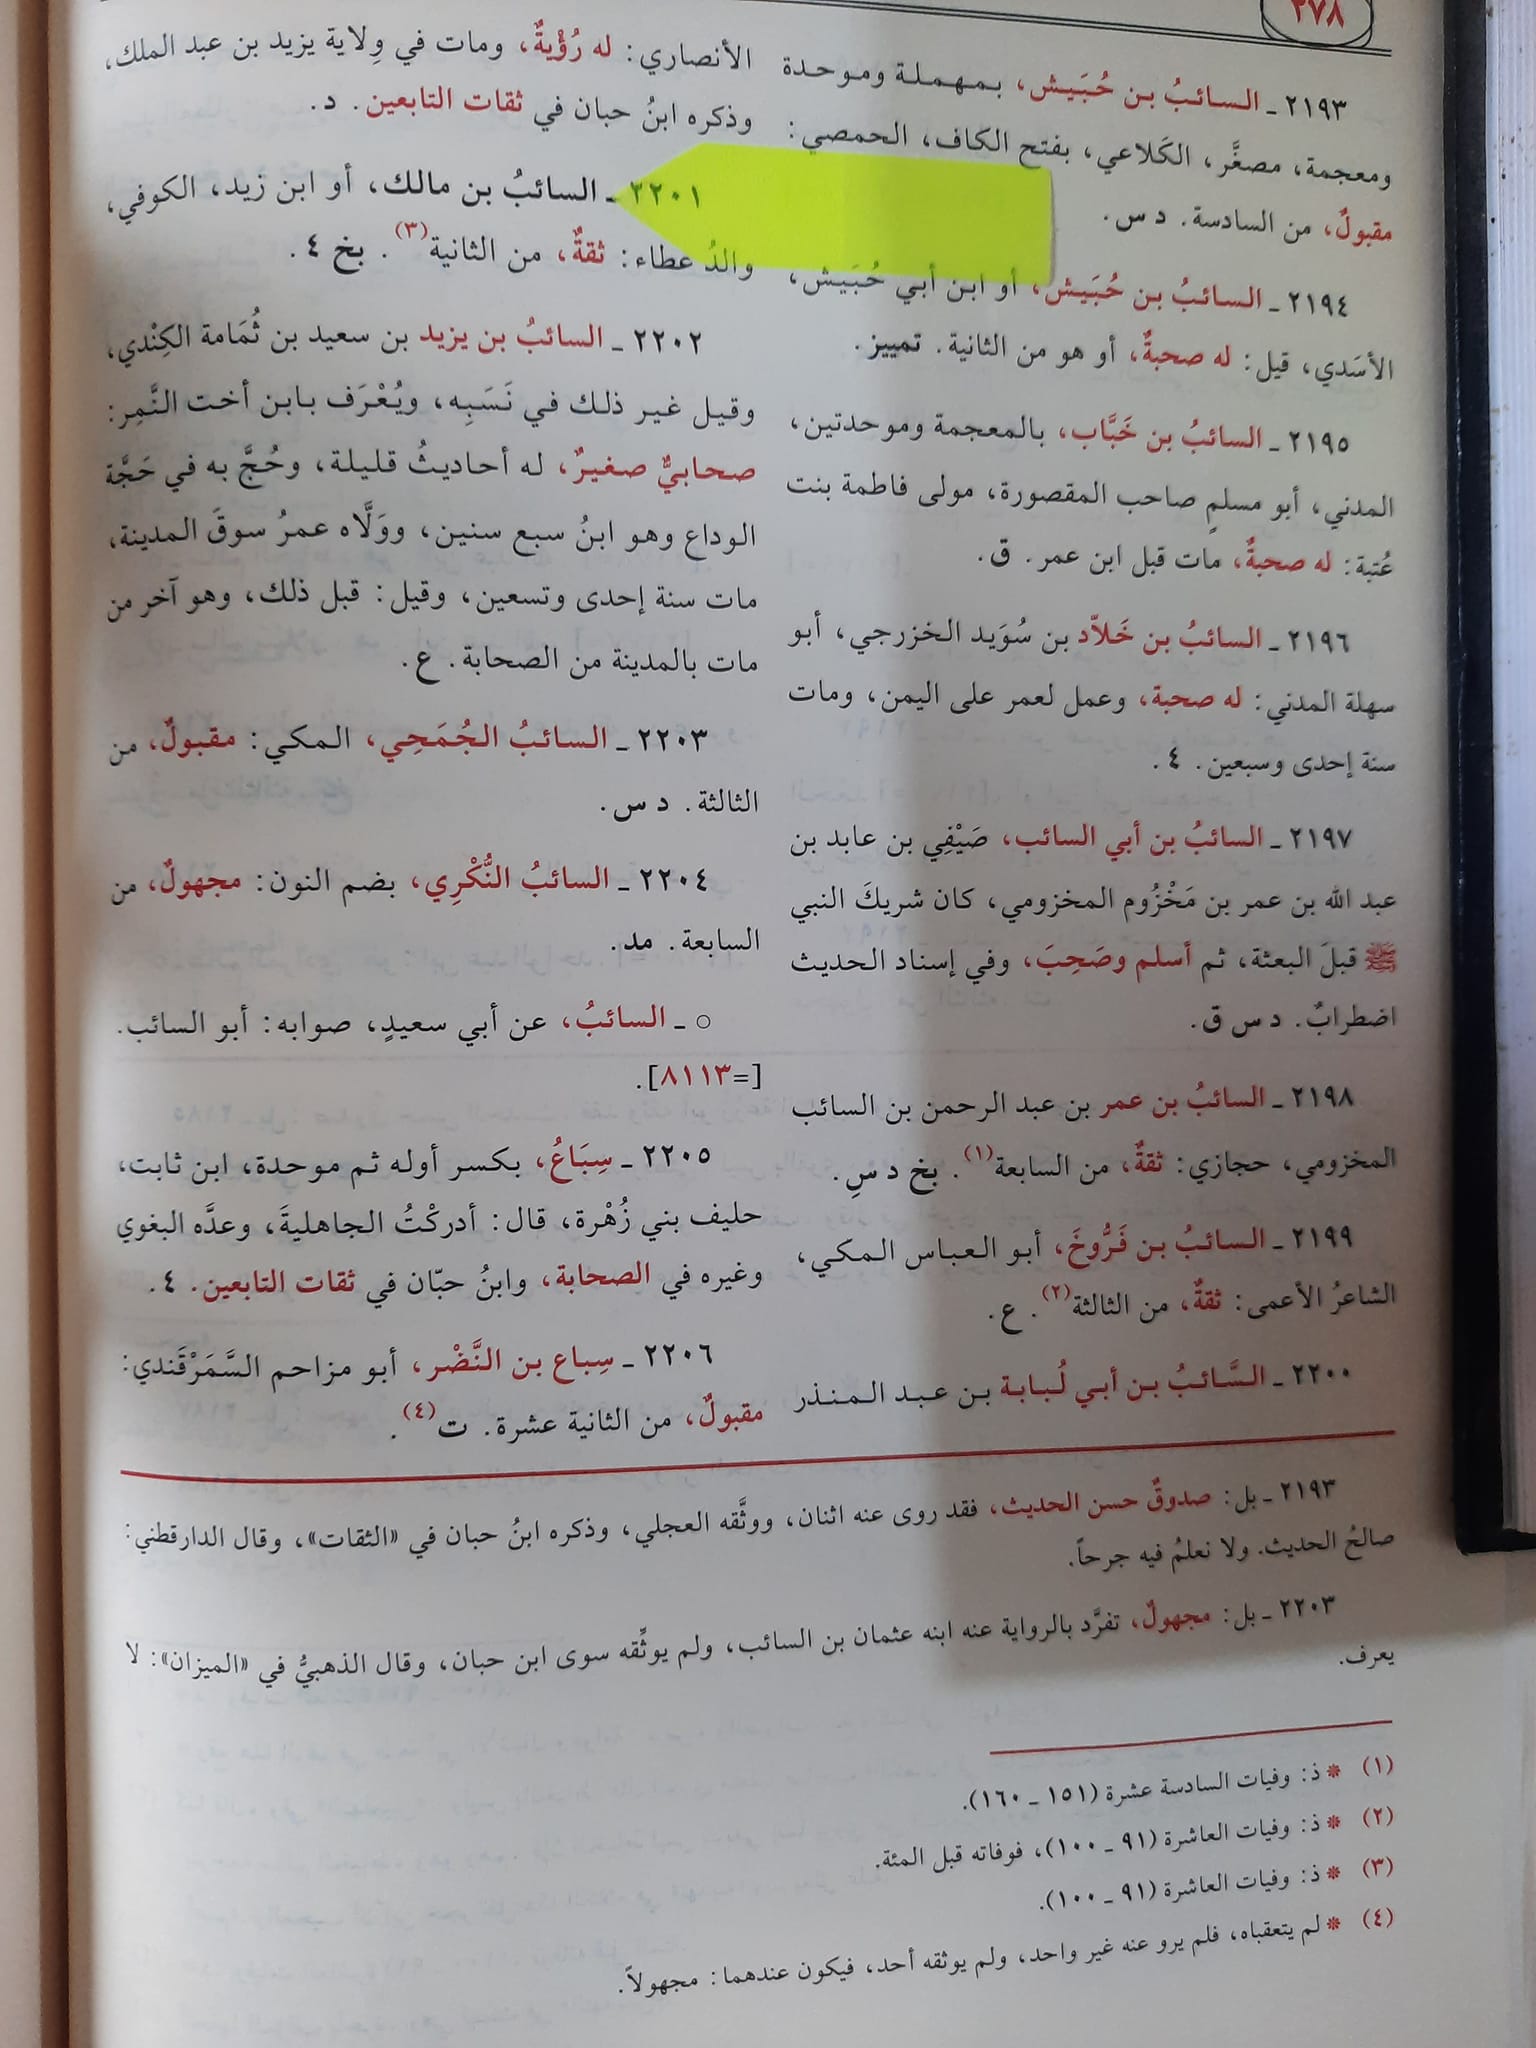 ٢٧٨
٢١٩٣ ـ السائبُ بن حُبَيش، بمهملة وموحدة
ومعجمة، مصغَّر، الكَلاعي، بفتح الكاف، الحمصي:
مقبولٌ، من السادسة. د س.
٢١٩٤ ـ السائبُ بن حُبَيش، أو ابن أبي حُبَيش،
الأسَدي، قيل: له صحبةٌ، أو هو من الثانية. تمييز.
٢١٩٥ ـ السائبُ بن خَبَّاب، بالمعجمة وموحدتين،
المدني، أبو مسلمٍ صاحب المقصورة، مولى فاطمة بنت
عُتبة: له صحبةٌ، مات قبل ابن عمر. ق.
٢١٩٦ ـ السائبُ بن خَلاّد بن سُوَيد الخزرجي، أبو
سهلة المدني: له صحبة، وعمل لعمر على اليمن، ومات
سنة إحدى وسبعين. ٤.
٢١٩٧ ـ السائبُ بن أبي السائب، صَيْفِي بن عابد بن
عبد الله بن عمر بن مَخْزُوم المخزومي، كان شريكَ النبي
ﷺ قبلَ البعثة، ثم أسلم وصَحِبَ، وفي إسناد الحديث
اضطرابٌ. د س ق.
٢١٩٨ ـ السائبُ بن عمر بن عبد الرحمن بن السائب
المخزومي، حجازي: ثقةٌ، من السابعة(١). بخ د س.
٢١٩٩ ـ السائبُ بن فَرُّوخَ، أبو العباس المكي،
الشاعرُ الأعمى: ثقةٌ، من الثالثة(٢). ع.
٢٢٠٠ ـ السَّائبُ بن أبي لُبابة بن عبد المنذر
الأنصاري: له رُؤْيةٌ، ومات في وِلاية يزيد بن عبد الملك،
وذكره ابنُ حبان في ثقات التابعين. د.
٢٢٠١ ـ السائبُ بن مالك، أو ابن زيد، الكوفي،
والدُ عطاء: ثقةٌ، من الثانية(٣). بخ ٤.
٢٢٠٢ ـ السائبُ بن يزيد بن سعيد بن ثُمَامة الكِنْدي،
وقيل غير ذلك في نَسَبِه، ويُعْرَف بابن أخت النَّمِر:
صحابيٌّ صغيرٌ، له أحاديثُ قليلة، وحُجَّ به في حَجَّة
الوداع وهو ابنُ سبع سنين، ووَلَّاه عمرُ سوقَ المدينة،
مات سنة إحدى وتسعين، وقيل: قبل ذلك، وهو آخر من
مات بالمدينة من الصحابة. ع.
٢٢٠٣ ـ السائبُ الجُمَحِي، المكي: مقبولٌ، من
الثالثة. د س.
٢٢٠٤ ـ السائبُ النُّكْرِي، بضم النون: مجهولٌ، من
السابعة. مد.
○ ـ السائبُ، عن أبي سعيدٍ، صوابه: أبو السائب.
[=٨١١٣].
٢٢٠٥ ـ سِبَاعُ، بكسر أوله ثم موحدة، ابن ثابت،
حليف بني زُهْرة، قال: أدركْتُ الجاهليةَ، وعدَّه البغوي
وغيره في الصحابة، وابنُ حبّان في ثقات التابعين. ٤.
٢٢٠٦ ـ سِباع بن النَّضْر، أبو مزاحم السَّمَرْقَندي:
مقبولٌ، من الثانية عشرة. ت(٤).
٢١٩٣ ـ بل: صدوقٌ حسن الحديث، فقد روى عنه اثنان، ووثَّقه العجلي، وذكره ابنُ حبان في «الثقات»، وقال الدارقطني:
صالحُ الحديث. ولا نعلمُ فيه جرحاً.
٢٢٠٣ ـ بل: مجهولٌ، تفرَّد بالرواية عنه ابنه عثمان بن السائب، ولم يوثِّقه سوى ابن حبان، وقال الذهبيُّ في «الميزان»: لا
يعرف.
(١) * ذ: وفيات السادسة عشرة (١٥١ ـ ١٦٠).
(٢) * ذ: وفيات العاشرة (٩١ ـ ١٠٠)، فوفاته قبل المئة.
(٣) * ذ: وفيات العاشرة (٩١ ـ ١٠٠).
(٤) * لم يتعقباه، فلم يرو عنه غير واحد، ولم يوثقه أحد، فيكون عندهما: مجهولاً.